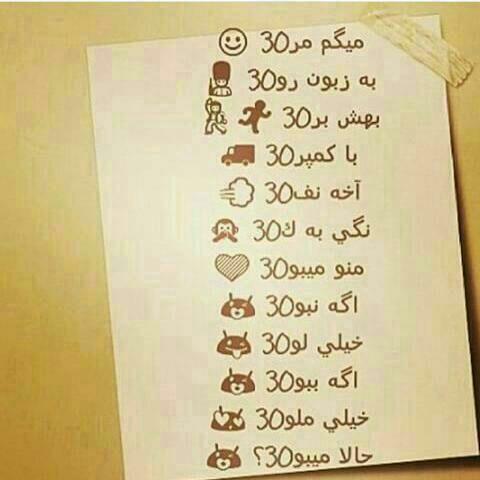 میگم مر30
به زبون رو30
بهش بر30
با کمپر30
آخه نف30
نگي به ك30
منو میبو30
اگه نبو30
خیلي لو30
اگه ببو30
خیلي ملو30
حالا میبو30؟